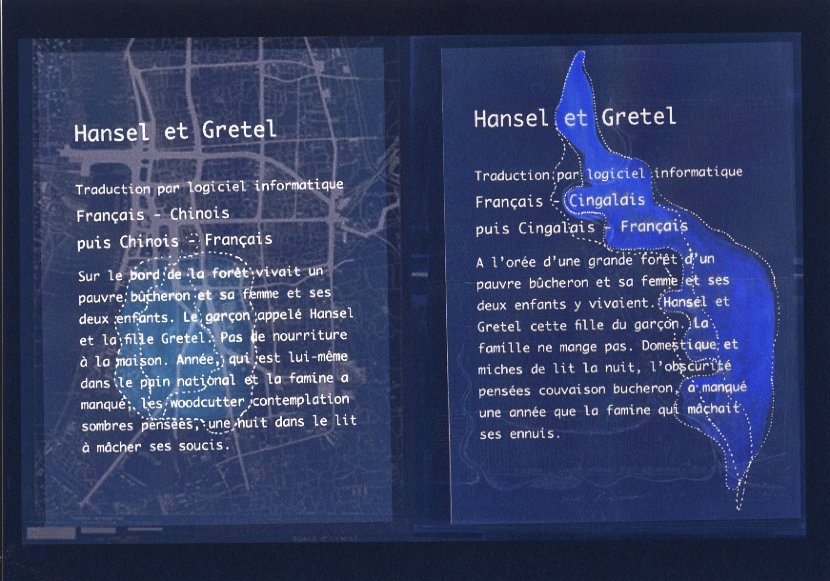 Hansel et Gretel
Traduction par logiciel informatique
Français - Chinois
puis Chinois - Français
Sur le bord de la forêt vivait un
pauvre bûcheron et sa femme et ses
deux enfants. Le garçon appelé Hansel
et la fille Gretel. Pas de nourriture
à la maison. Année, qui est lui-même
dans le pain national et la famine a
manqué, les woodcutter contemplation
sombres pensées, une nuit dans le lit
à mâcher ses soucis.
Hansel et Gretel
Traduction par logiciel informatique
Français - Cingalais
puis Cingalais - Français
A l'orée d'une grande forêt d'un
pauvre bûcheron et sa femme et ses
deux enfants y vivaient. Hansel et
Gretel cette fille du garçon. La
famille ne mange pas. Domestique et
miches de lit la nuit, l'obscurité
pensées couvaison bucheron, a manqué
une année que la famine qui mâchait
ses ennuis.